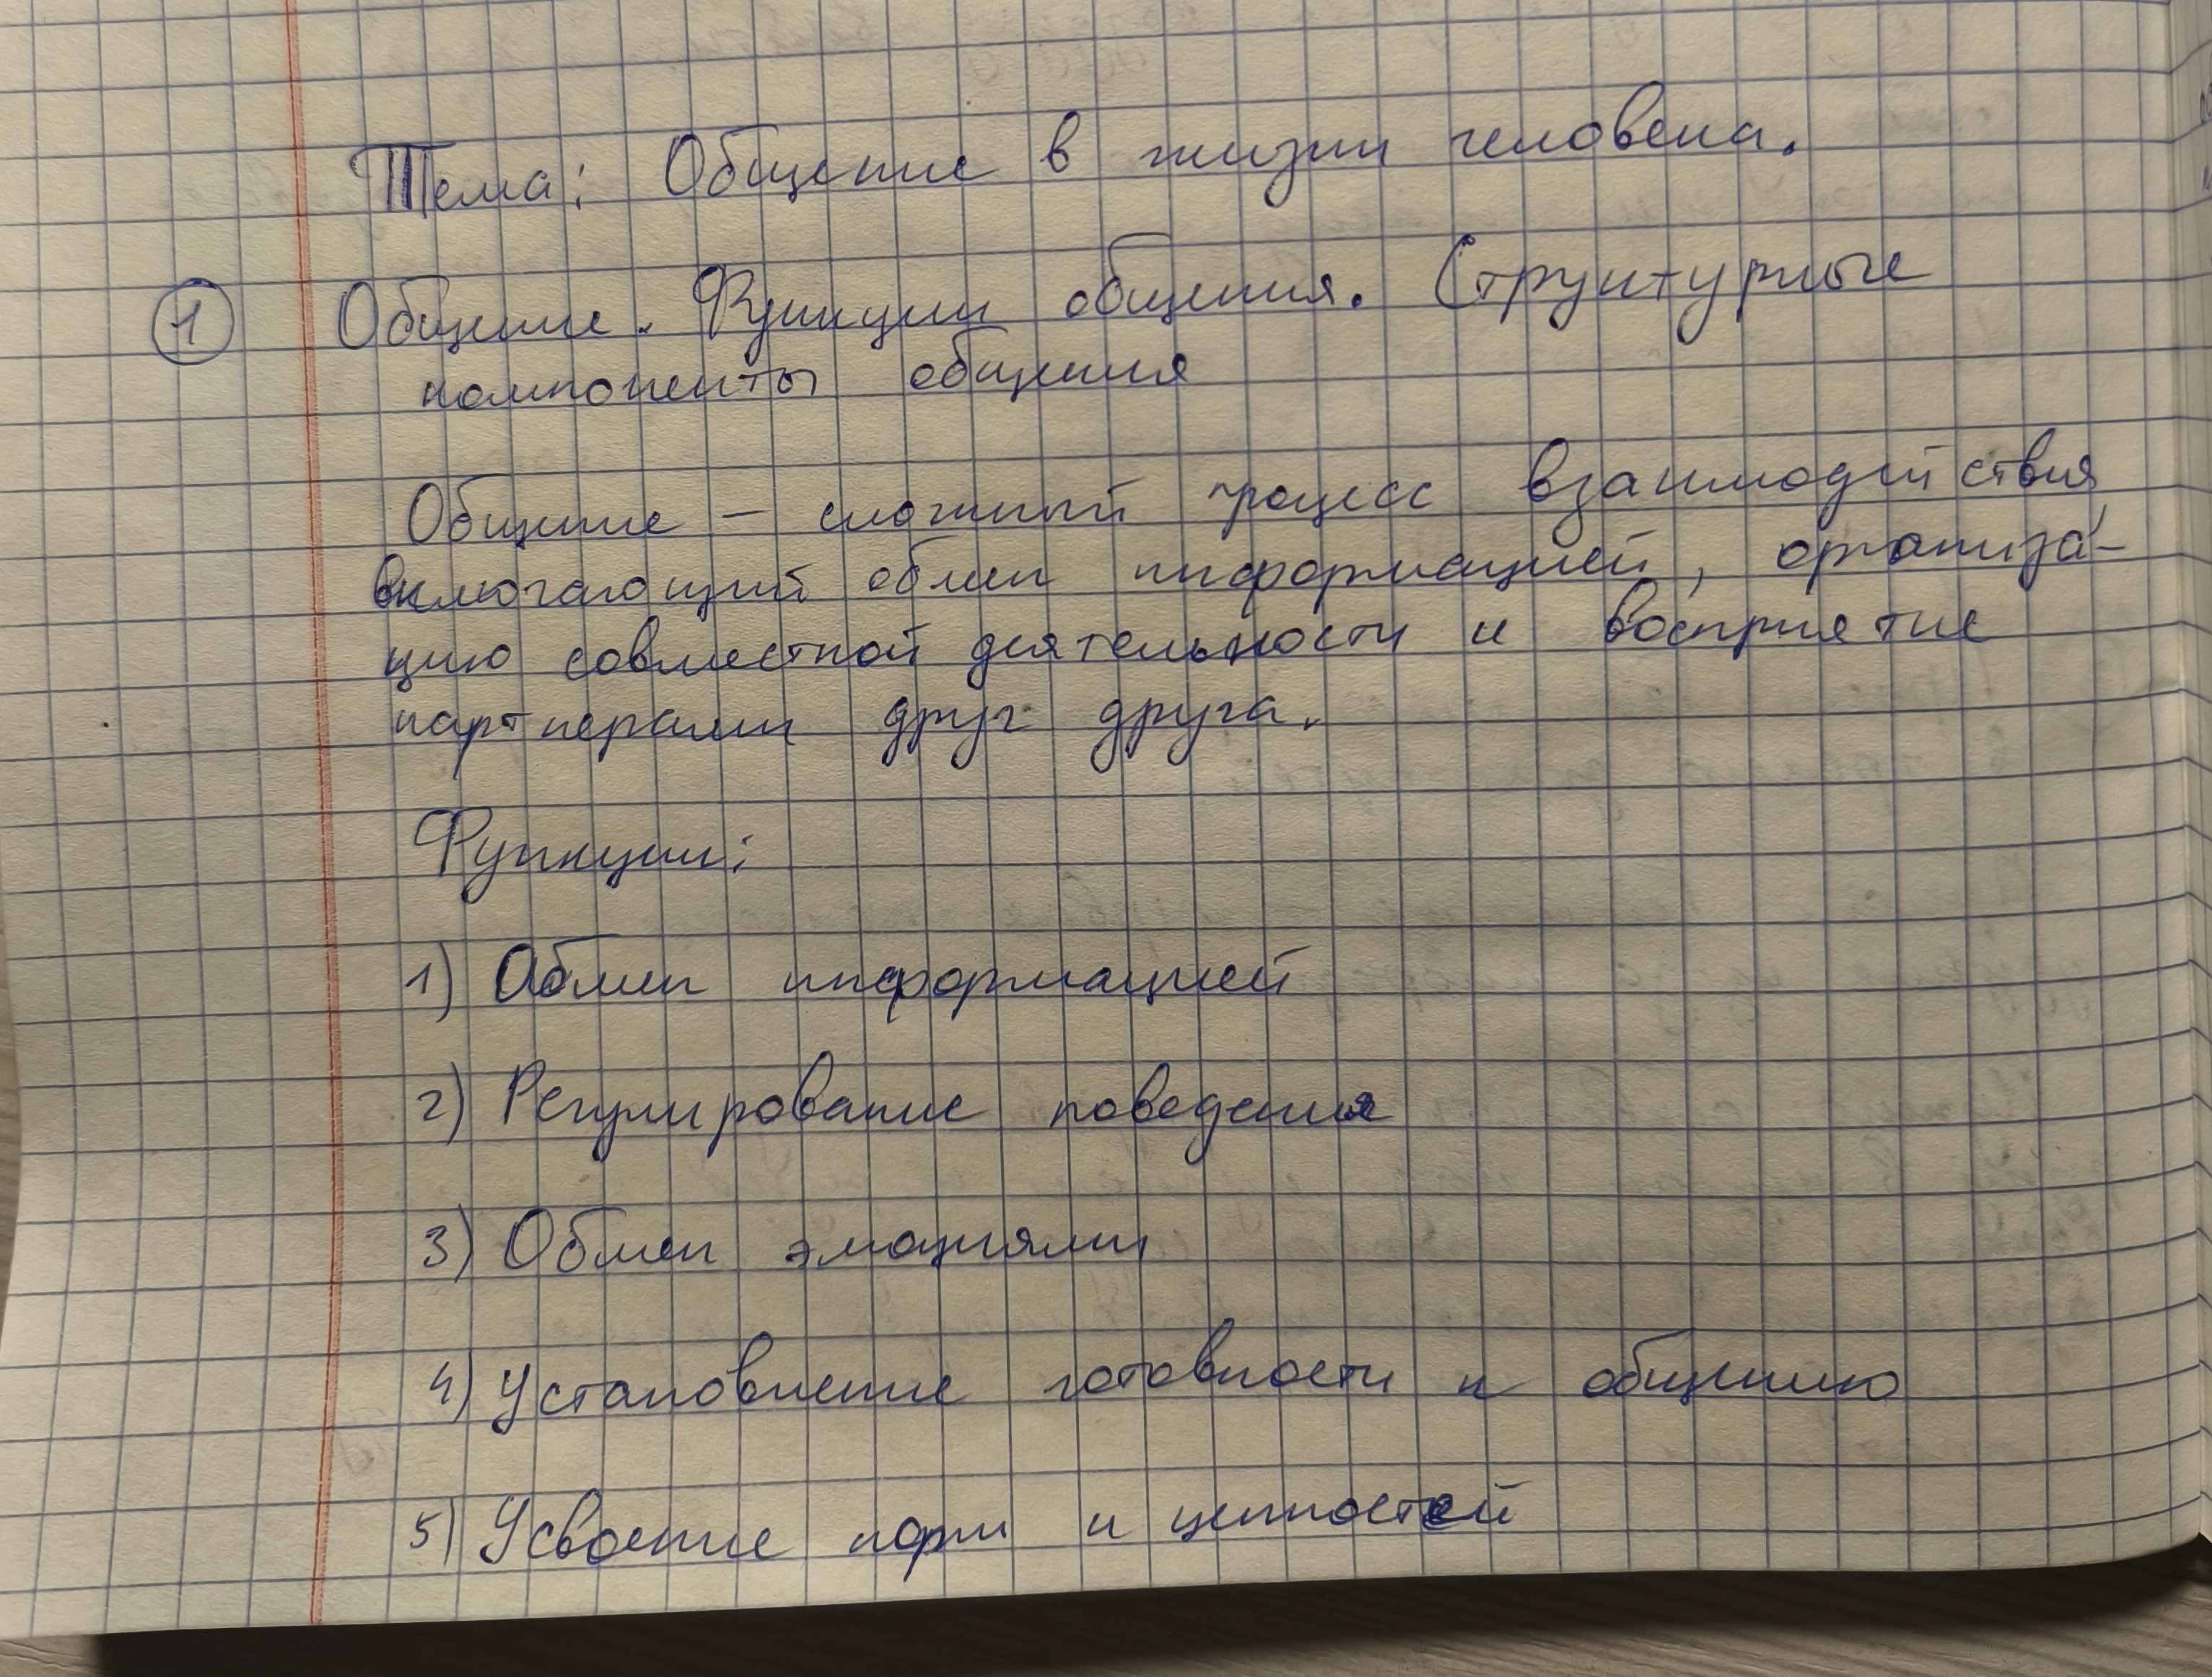 Тема: Общение в жизни человека.
1 Общение. Функции общения. Структурные
компоненты общения
Общение – сложный процесс взаимодействия,
включающий обмен информацией, организа-
цию совместной деятельности и восприятие
партнерами друг друга.
Функции:
1) Обмен информацией
2) Регулирование поведения
3) Обмен эмоциями
4) Установление готовности к общению
5) Усвоение норм и ценностей